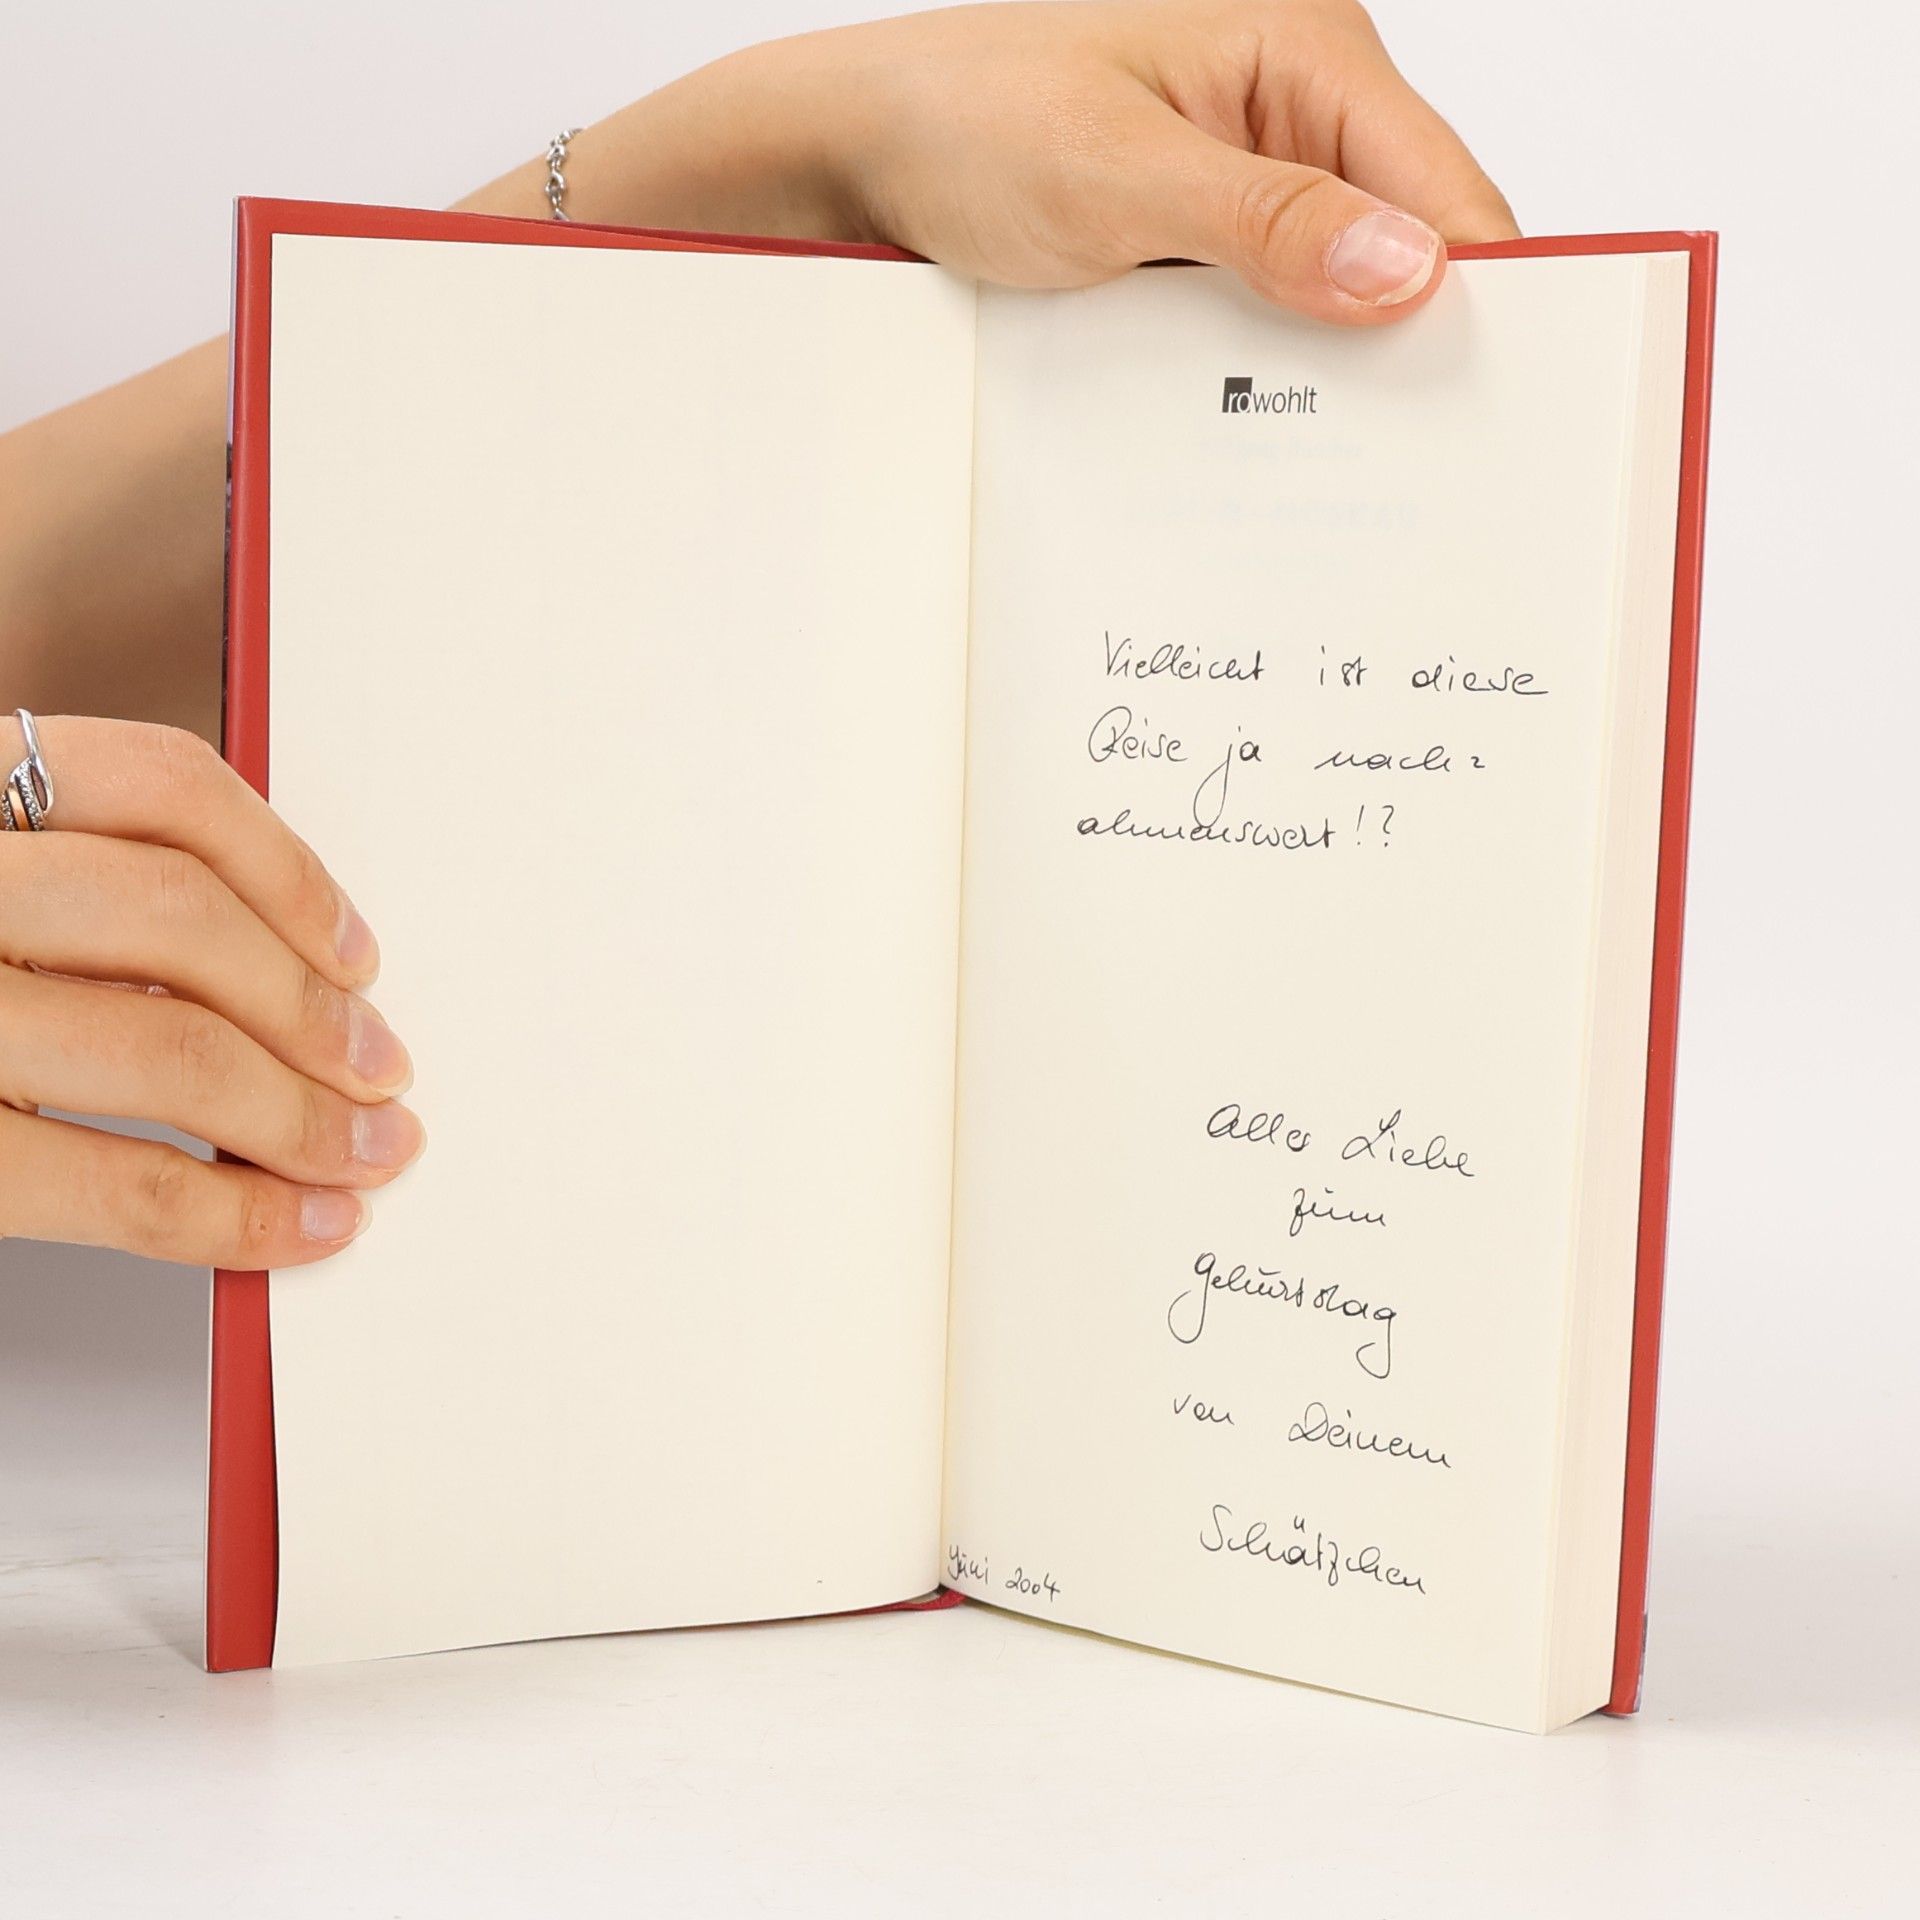 rowohlt
Vielleicht ist diese
Reise ja nach=
ahmenswert!?
Alles Liebe
zum
Geburtstag
von Deinem
Schätzchen
Juni 2004